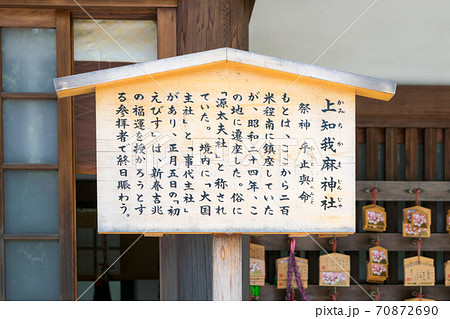 かみちかまじんじゃ
上知我麻神社
祭神 乎止與命
もとは、ここから二百
米程南に鎮座していた
が、昭和二四年、こ
の地に遷座した。俗に
「源太夫社」と称され
ていた。境内に「大国
主社」と「事代主社」
があり、正月五日の「初
えびす」は新春吉兆
の福運を授かろうとす
る参拝者で終日賑わう。
pixta.jp - 70872690